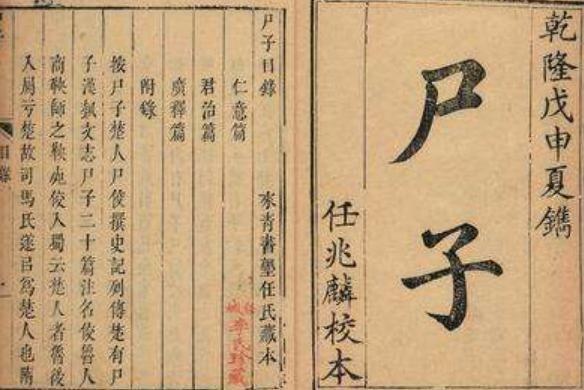 乾隆戊申夏鐫
尸子
任兆麟校本
尸子目錄
來青書塾任氏藏本
仁意篇
君治篇
廣釋篇
附錄
按尸子楚人尸佼撰史記列傳楚有尸
子漢藝文志尸子二十篇注名佼魯人
商鞅師之鞅死佼入蜀云楚人者魯後
入屬于楚故司馬氏遂㠯爲楚人也隋
李氏珍藏
目錄